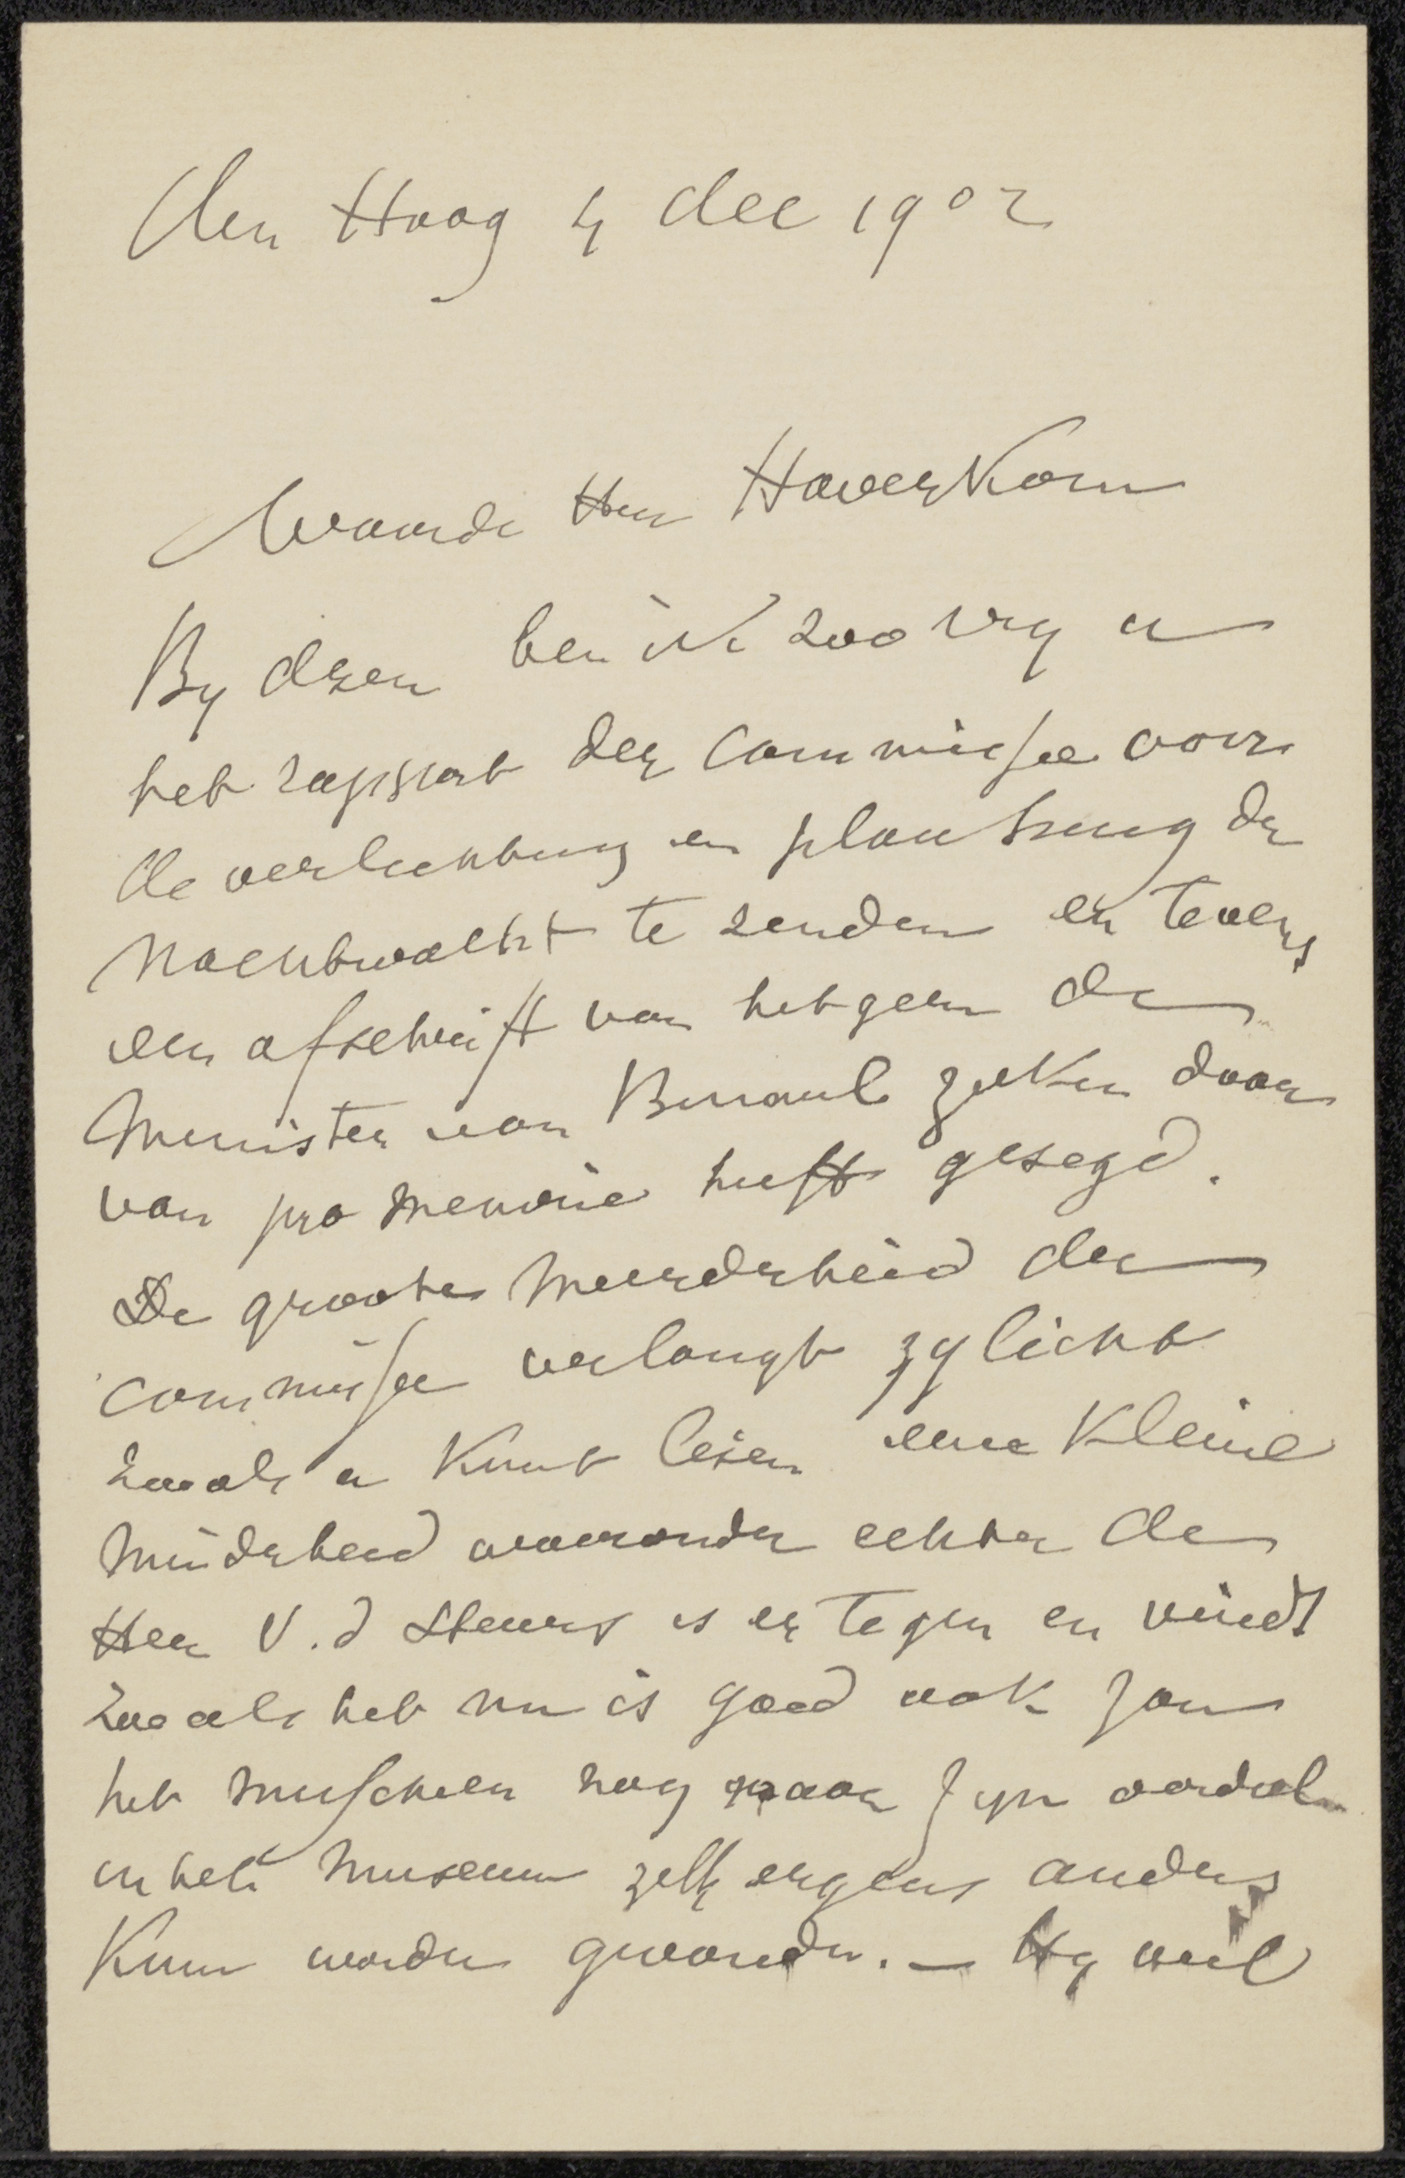 den Haag 4 dec 1902
Waarde Heer Haverkorn
By dezen ben ik zoo vry u
het rapport der commissie voor
de verlichting en plaatsing der
Nachtwacht te zenden en tevens
een afschrift van hetgeen de
Minister van Binnenl zaken daar
van pro memorie heeft gezegd.
De groote meerderheid der
commissie verlangt zylicht
zooals u kunt lezen eene kleine
minderheid waaronder echter de
Heer V. d Steurs is er tegen en vindt
zooals het nu is goed ook zou
het misschien nog naar zyn oordeel
in het museum zelf ergens anders
kunn worden gevonden. — Hy wil